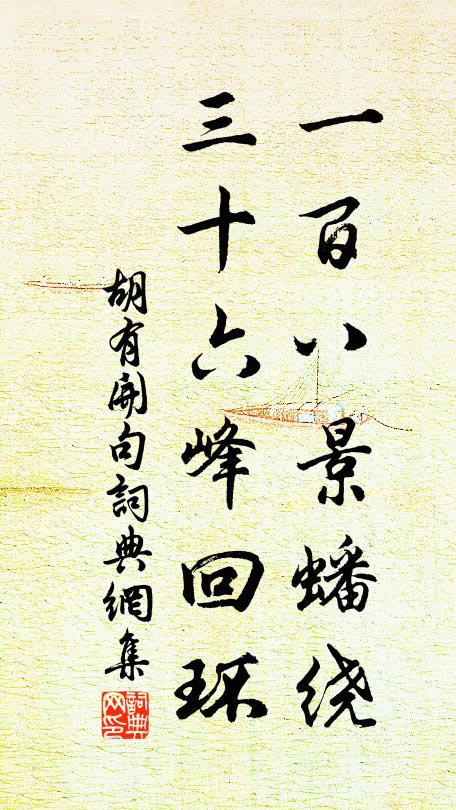 一百八景蟠绕
三十六峰回环
胡有開句詞典網集
詞典网印